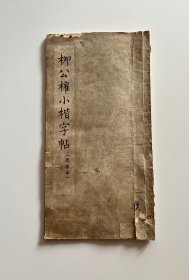 柳公權小楷字帖